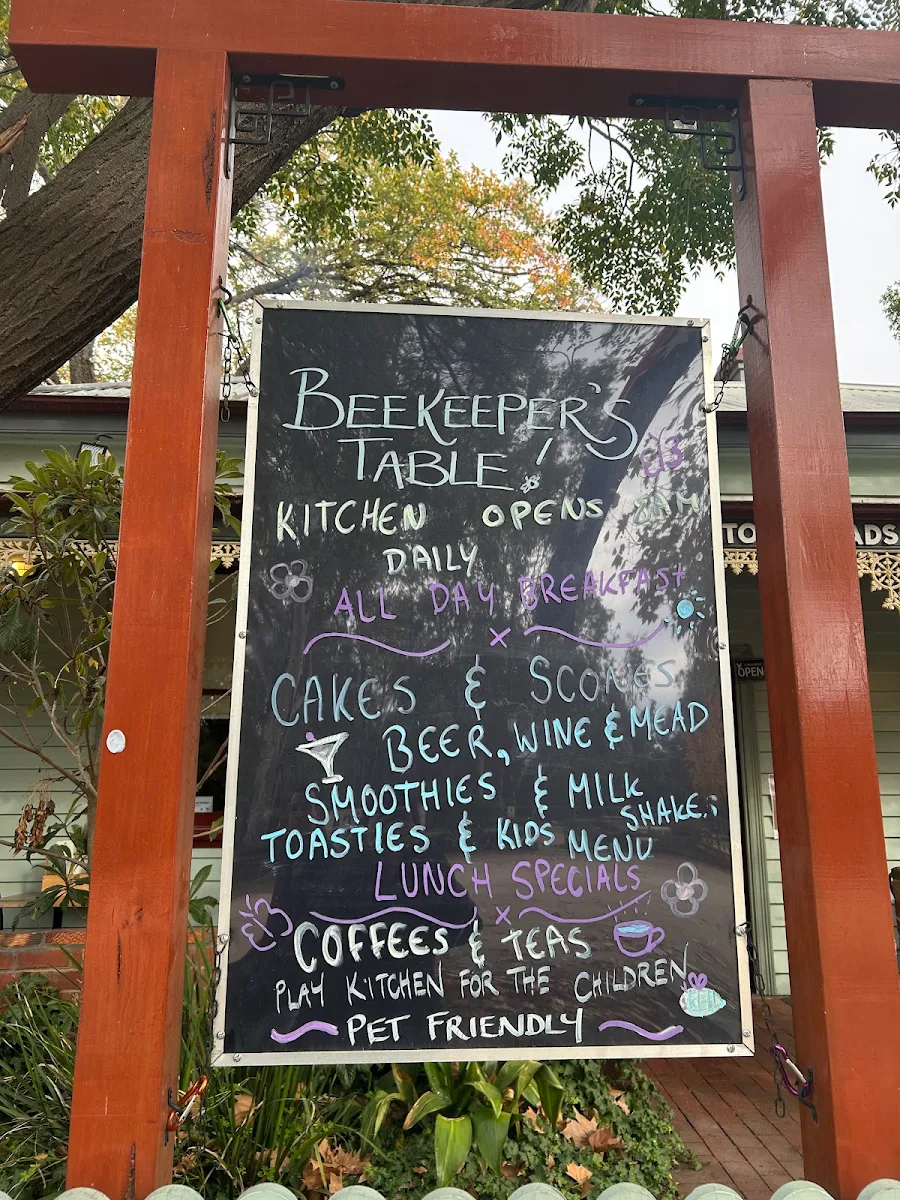 BEEKEEPER'S
TABLE!
KITCHEN OPENS 8AM
DAILY
ALL DAY BREAKFAST
x
CAKES & SCONES
BEER, WINE & MEAD
SMOOTHIES & MILK
SHAKES
TOASTIES & KIDS MENU
LUNCH SPECIALS
x
COFFEES & TEAS
PLAY KITCHEN FOR THE CHILDREN
PET FRIENDLY
OPEN